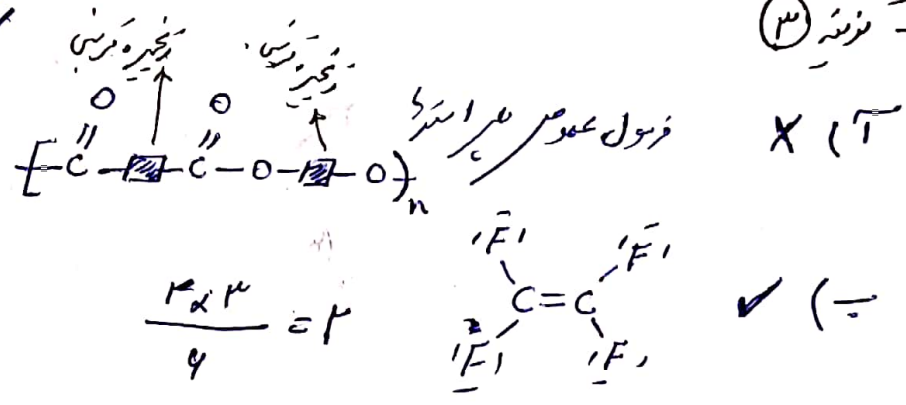 - گزینه ۳
آ) ×
فرمول عمومی پلی استرها
زنجیره کربنی
زنجیره کربنی
[C(=O)-▨-C(=O)-O-▨-O]n
ب) ✓
F F
C=C
F F
۴×۳/۶ = ۲